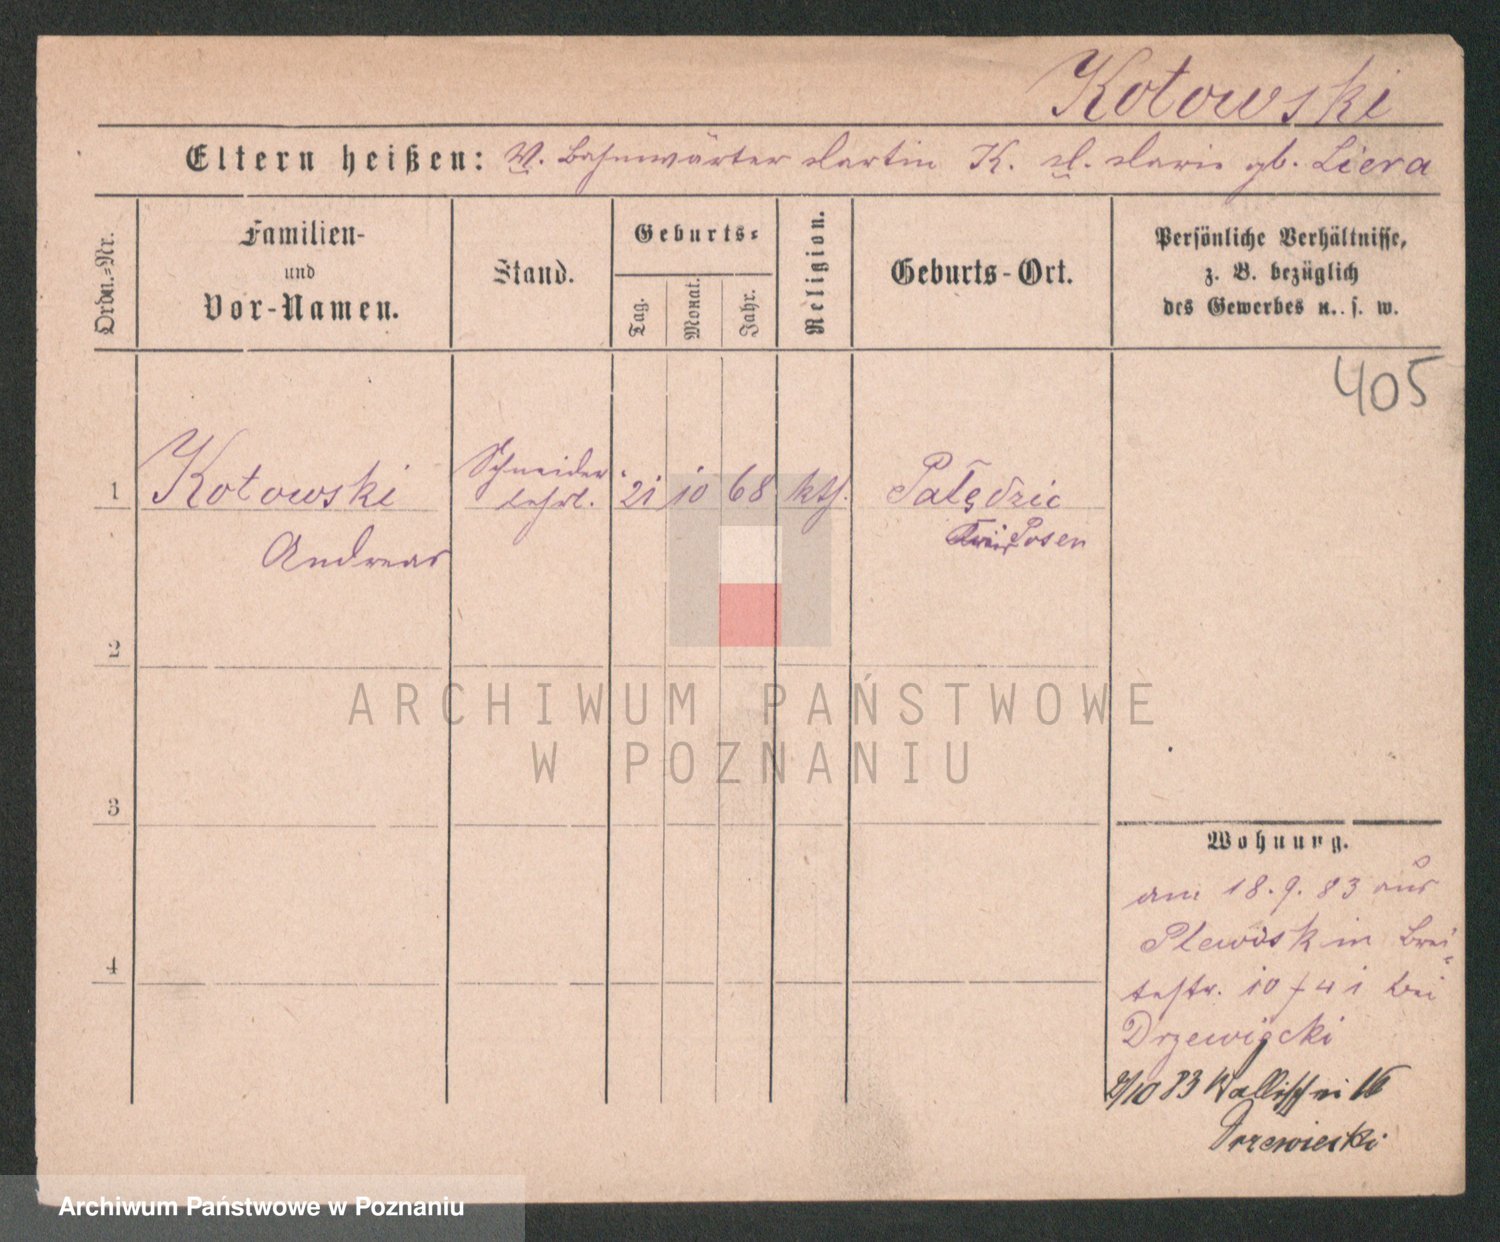 Kotowski
Eltern heißen: V. Bahnwärter Martin K. M. Marie gb. Liera
Ordn.=Nr.
Familien-
und
Vor-Namen.
Stand.
Geburts=
Tag.
Monat.
Jahr.
Religion.
Geburts-Ort.
Persönliche Verhältnisse,
z. B. bezüglich
des Gewerbes u. s. w.
405
1
Kotowski
Andreas
Schneider
lehrl.
21
10
68
kth.
Palędzie
Posen
2
3
4
Wohnung.
am 18.9.83 aus
Plewisk in Brei-
testr. 10 f 41 bei
Drzewięcki
2/10 83 Wallischei 16
Drzewiecki
ARCHIWUM PAŃSTWOWE
W POZNANIU
Archiwum Państwowe w Poznaniu